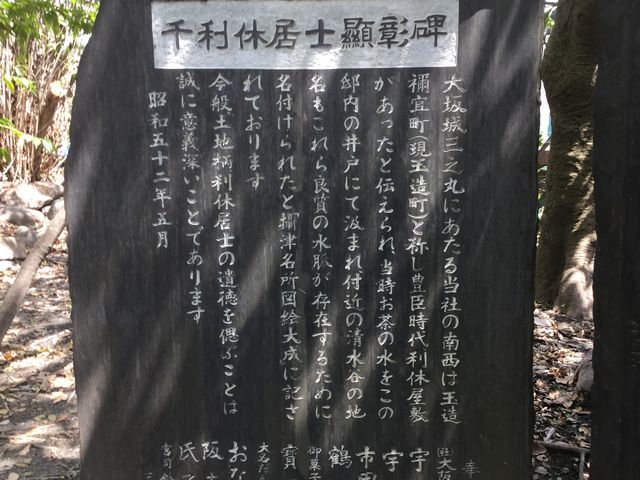 千利休居士顯彰碑
大坂城三之丸にあたる当社の南西は玉造
禰宜町(現玉造町)と称し豊臣時代利休屋敷
があったと伝えられ、当時お茶の水をこの
邸内の井戸にて汲まれ付近の清水谷の地
名もこれら良質の水脈が存在するために
名付けられたと攝津名所図絵大成に記さ
れております
今般、土地柄利休居士の遺徳を偲ぶことは
誠に意義深いことであります
昭和五十二年五月
奉
(社)大阪
宇
宇
市
鶴
御菓子
寶
大名だ
おな
阪
氏
宮司